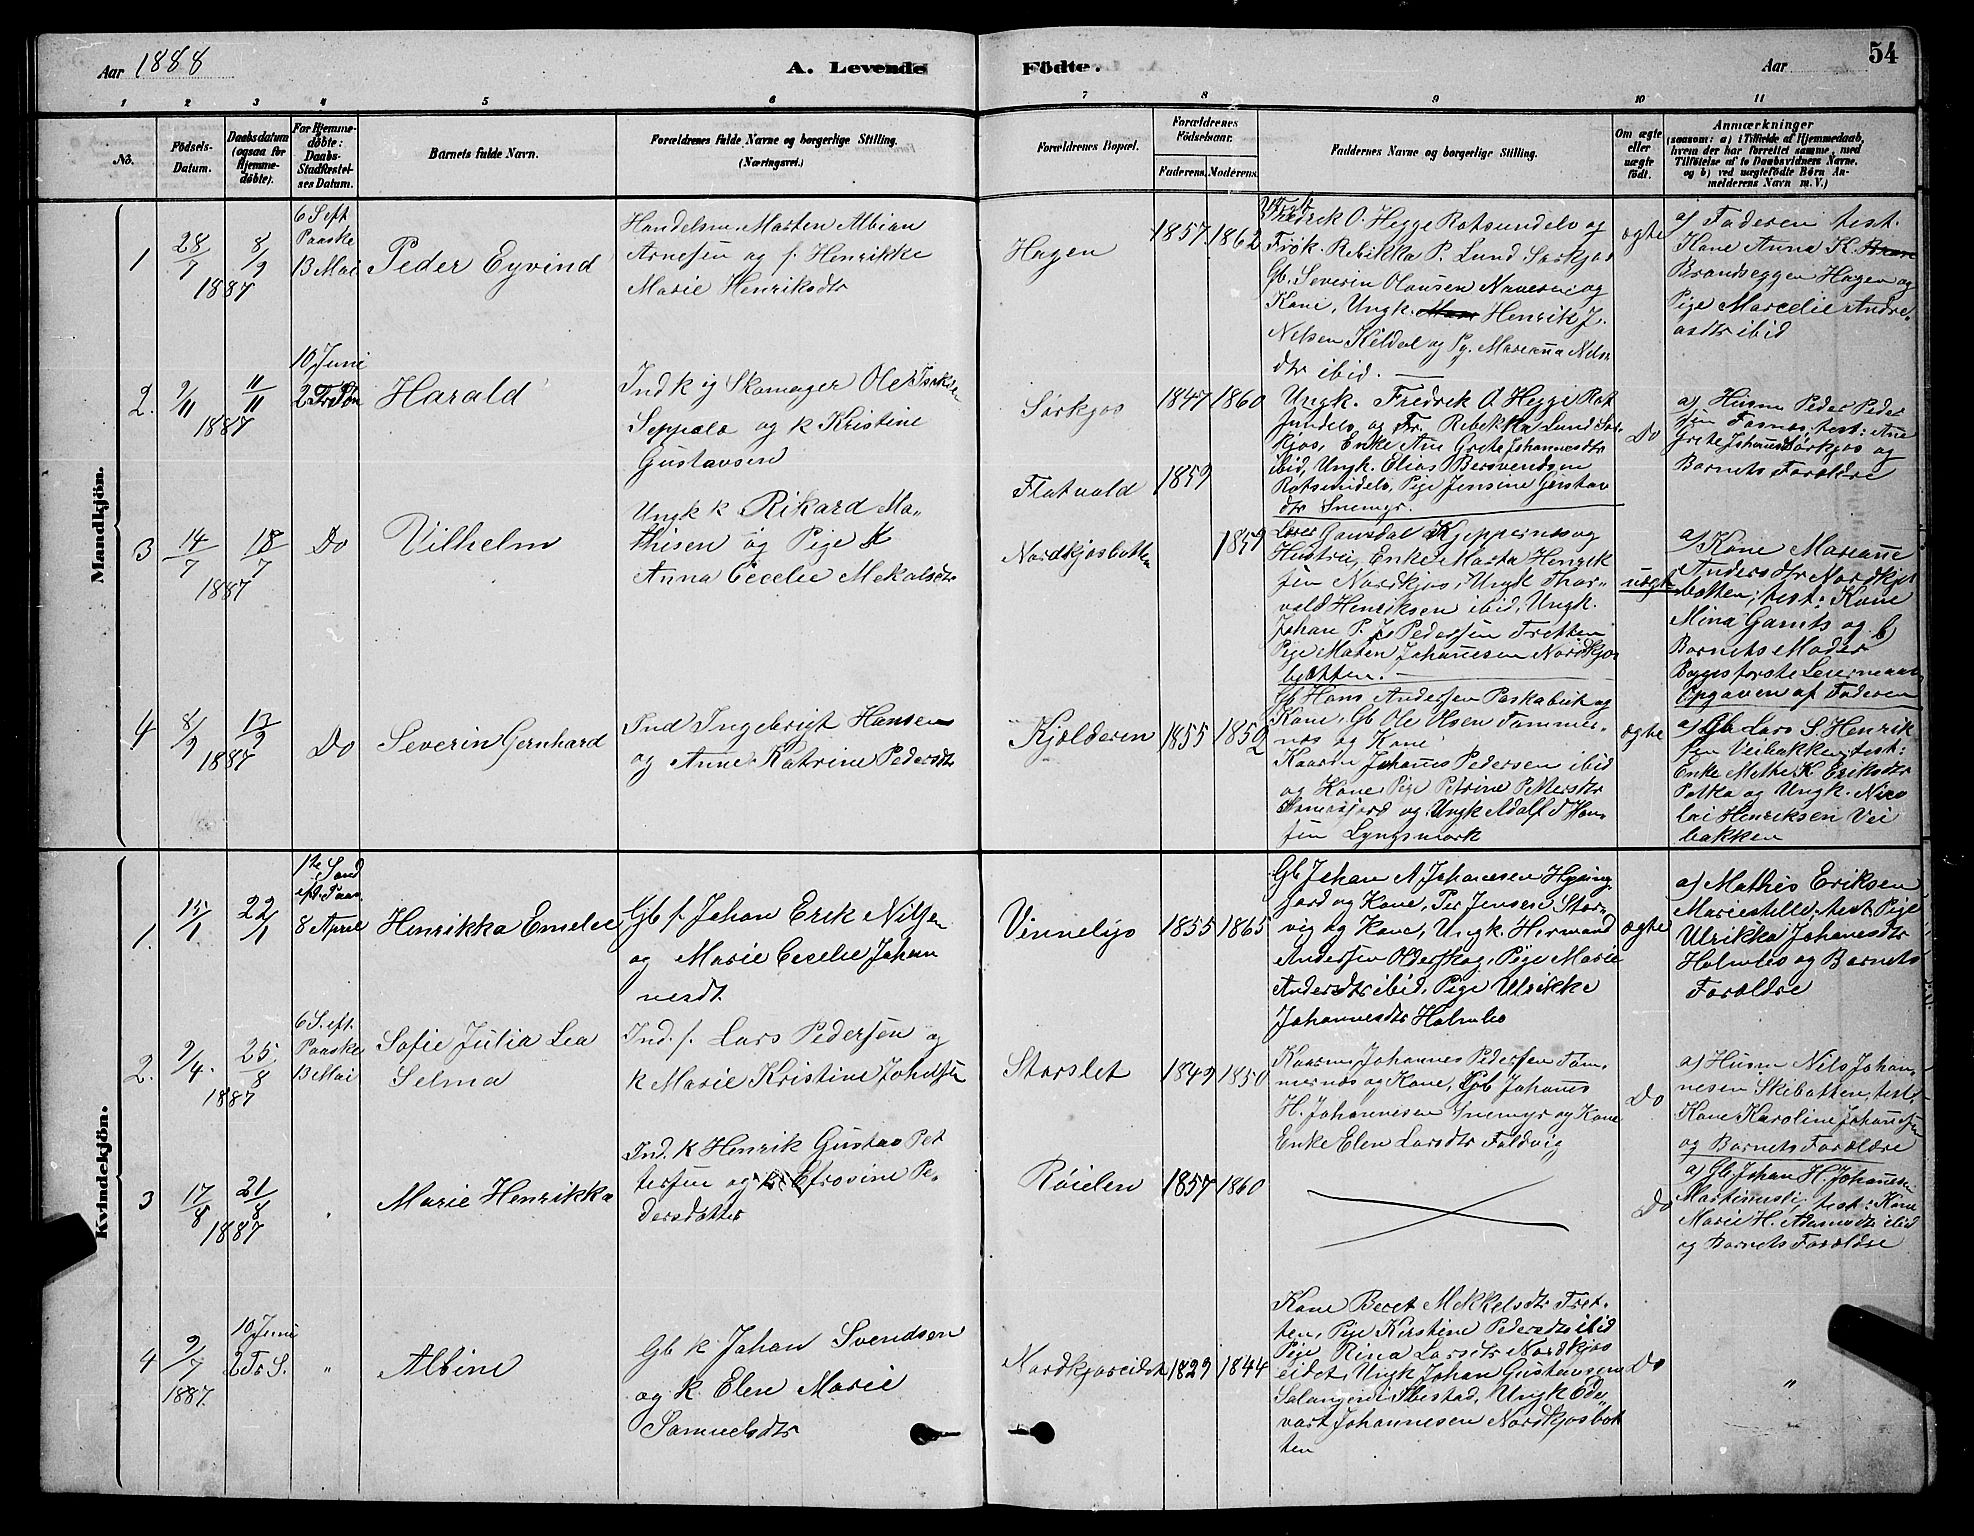 Aar 1888
A. Levende Födte.
Aar
54
1 2 3 4 5 6 7 8 9 10 11
No.
Födsels-Datum.
Daabsdatum (ogsaa for Hjemme-döbte).
For Hjemme-döbte: Daabs-Stadfæstel-ses Datum.
Barnets fulde Navn.
Forældrenes fulde Navne og borgerlige Stilling. (Næringsvei.)
Forældrenes Bopæl.
Forældrenes Födselsaar.
Faderens. Moderens.
Faddernes Navne og borgerlige Stilling.
Om ægte eller uægte födt.
Anmærkninger
(saasom: a) i Tilfælde af Hjemmedaab,
hvem der har forrettet samme, med
Tilföielse af to Daabsvidners Navne,
og b) ved uægtefödte Börn An-
melderens Navn m. V.)
Mandkjön.
1
28/7 8/9
1887
6 S eft
Paaske
13 Mai
Peder Eyvind
Handelsm. Morten Albian
Arnesen og f. Henrikke
Marie Henriksdtr
Hagen
1857 1862
Fredrik O. Hegge Rotsundelv og
Frøk. Rebikka P. Lund Sørkjos
Gb. Severin Olausen Naveren og
Kone, Ungk. Henrik J.
Nelsen Kildal og Pg. Marianna Nels
dtr ibid.
ægte
a) Faderen test.
Kone Anna K.
Brandseggen Hagen og
Pige Marcelie Andre
asdtr ibid
2.
9/11 11/11
1887
10 Juni
Harald
Ind k ig Skomager Ole
Seppala og k Kristine
Gustavsen
Sørkjos
1847 1860
Ungk. Fredrek O Heggi Rot
sundelv og Fr. Rebekka Lund Sør
kjos, Enke Ane Grete Johannesdtr
ibid, Ungk. Elias Bersvendsen
Rotsundelv, Pige Jensine Gustav
dtr Snemyr.
Do
a) Husm Peder Peder
sen test: Ane
Grete Johannesdtr Sørkjos og
Barnets Forældre
3
14/7 18/7
1887
Do
Vilhelm
Ungk k Rikard Ma-
thisen og Pige K
Anna Cecelie Mekalsdtr
Flatvold
1859
Nordkjosbotten
1859
Hustru, Enke Marta Henrik
sen Nordkjos, Ungk Thor-
vald Henriksen ibid, Ungk.
Johan P. Pedersen Tretten
Pige Maten Johannesen Nordkjos
botten.
uægte
a) Kone Mariane
Andersdtr Nordkjos
botten; test: Kone
Mina Gamts og b)
Barnets Moder
Begges første Leiermaal
Opgaven af Faderen
4
8/9 17/9
1887
Do
Severin Gernhard
Ind Ingebrigt Hansen
og Anne Katrine Pedersdtr
Kjelderen
1855 1852
Gb Hans Andersen Paskabut og
Kone, Gb Ole Olsen Sommer-
nes og Kone
Kaarm Johannes Pedersen ibid
og Kone Pige Petrine Pettersdtr
og Ungk Adolf J Han-
sen Lyngsmark
ægte
a) Gb Lars S. Henrik
sen Veibakken, test:
Enke Methe K. Eriksdtr
Polka og Ungk. Nico
lai Henriksen Vei
bakken
Kvindekjön.
1.
15/1 22/1
1ste Sønd
eft. Paas.
8 April
Henrikka Emelie
Gb f. Johan Erik Nilsen
og Marie Cecelie Johan
nesdt.
Vinneljos
1855 1865
Gb Johan A Johannesen
og Kone, Per Jensen Stor-
vig og Kone, Ungk. Hermand
Andersen Olderskog, Pige Marie
Andersdtr ibid, Pige Ulrikke
Johannesdtr Holmbo
ægte
a) Mathis Eriksen
test. Pige
Ulrikka Johannesdtr
Holmbo og Barnets
Forældre
2.
9/4. 25/8
1887
6 S. eft.
Paaske
13 Mai
Sofie Julia Lea
Selma
Ind. f. Lars Pedersen og
k Marie Kristine Johansen
Storslet
1849 1850
Kaarm. Johannes Pedersen Som
mernæs og Kone, Gb Johans
H. Johannesen Snemyr og Kone
Enke Elen Larsdtr Foldvig
Do
a) Husm Nils Johan
nesen Skibotten, test.
Kone Karoline Johansen
og Barnets Forældre
3
17/8 21/8
1887
Marie Henrikka
Ind. k Henrik Gustav Pet
tersen og Efrosine Pe-
dersdatter
Røielen
1857 1860
Do
a) Gb Johan H. Johannesen
test: Kone
Marie H. Adamsdtr ibid
og Barnets Forældre
4
9/7
1887.
10 Juni
2 Tr S.
"
Albine
Gb k Johan Svendsen
og k. Elen Marie
Samuelsdtr
Nordkjoseidet
1829 1844
Kone Beret Mekkelsdtr Tret-
ten, Pige Kirstine Pedersdtr ibid
Pige Rina Larsdtr Nordkjos
eidet, Ungk Johan Gustavsen
Salangen Ibestad, Ungk Ed-
vart Johannesen Nordkjosbot
ten
Do
"